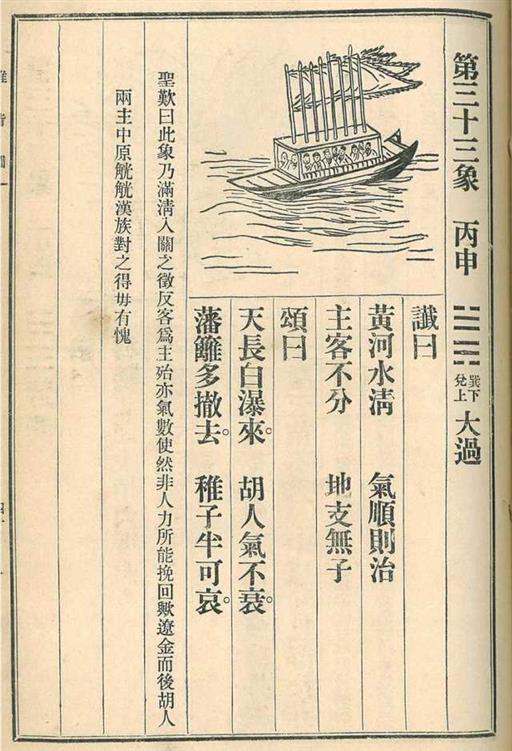 第三十三象 丙申 巽下兌上 大過
讖曰
黃河水清 氣順則治
主客不分 地支無子
頌曰
天長白瀑來。 胡人氣不衰。
藩籬多撤去。 稚子半可哀。
聖歎曰此象乃滿清入關之徵反客爲主殆亦氣數使然非人力所能挽回歟遼金而後胡人
兩主中原觥觥漢族對之得毋有愧